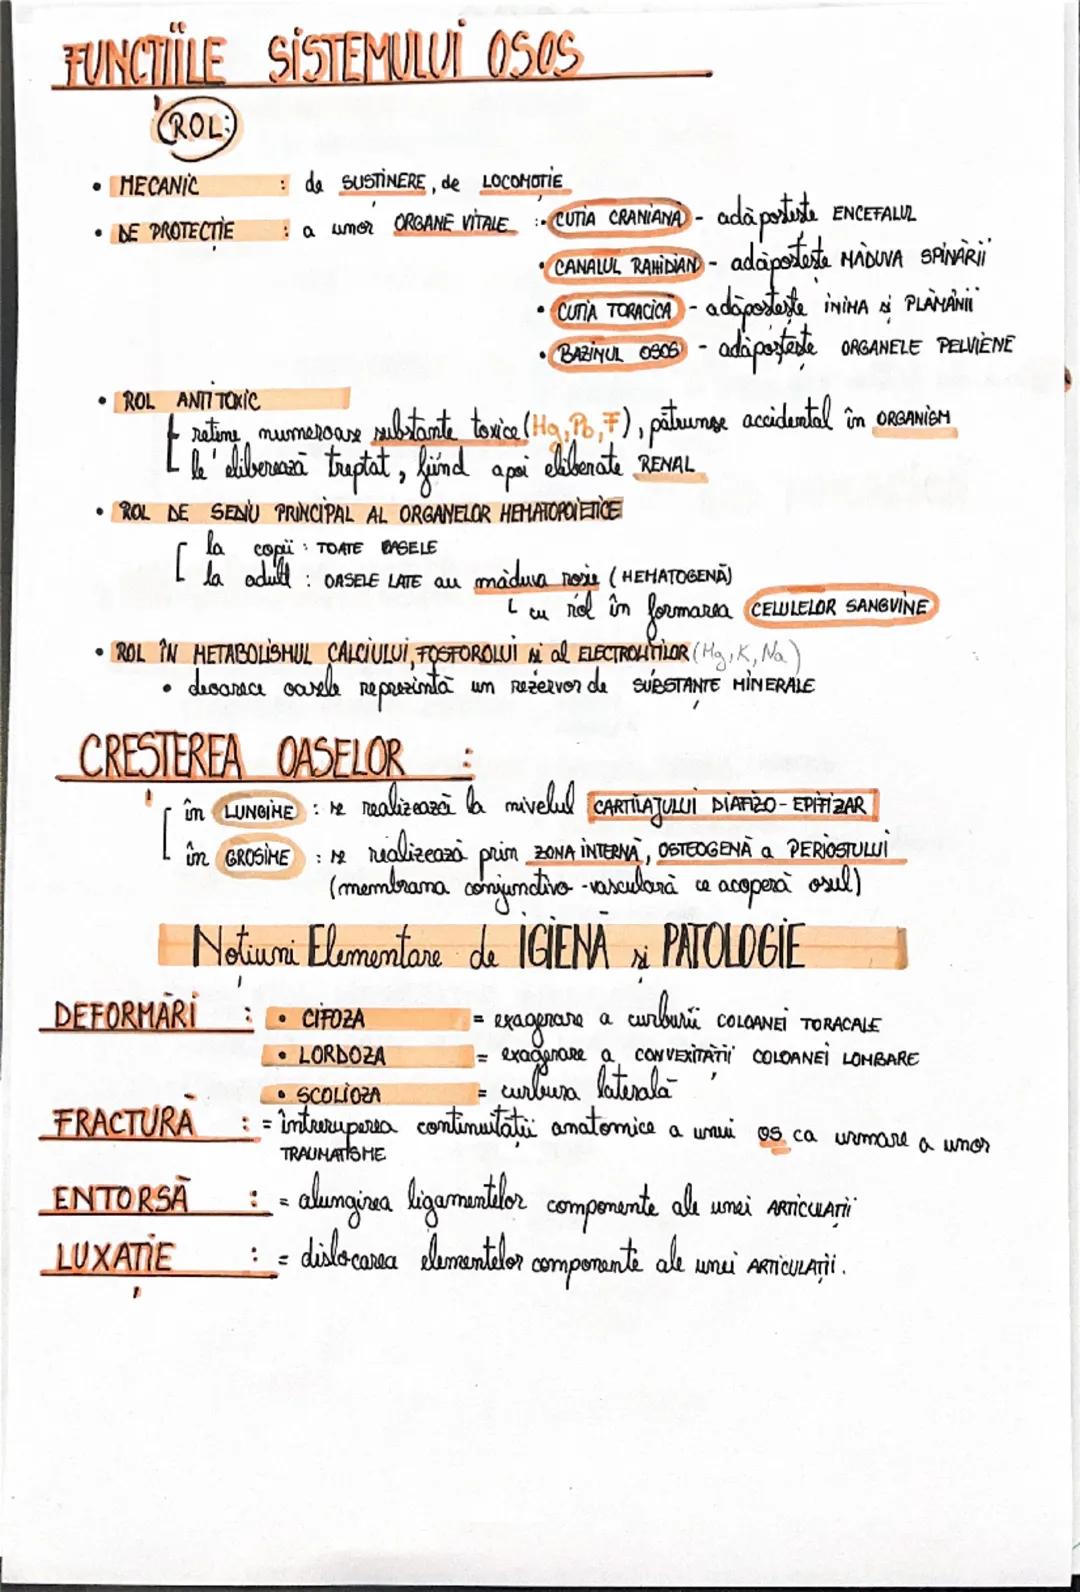 FUNCȚIILE SISTEMULUI OSOS
ROL:
• MECANIC : de SUSȚINERE, de LOCOMOȚIE
• DE PROTECȚIE : a unor ORGANE VITALE :• CUTIA CRANIANĂ - adăpostește ENCEFALUL
• CANALUL RAHIDIAN - adăpostește MĂDUVA SPINĂRII
• CUTIA TORACICĂ - adăpostește INIMA și PLĂMÂNII
• BAZINUL OSOS - adăpostește ORGANELE PELVIENE
• ROL ANTITOXIC
rețin numeroase substanțe toxice (Hg, Pb, F), pătrunse accidental în ORGANISM
le eliberează treptat, fiind apoi eliberate RENAL
• ROL DE SEDIU PRINCIPAL AL ORGANELOR HEMATOPOIETICE
la copii : TOATE OASELE
la adult : OASELE LATE au măduva roșie (HEMATOGENĂ)
cu rol în formarea CELULELOR SANGVINE
• ROL ÎN METABOLISMUL CALCIULUI, FOSFORULUI și al ELECTROLIȚILOR (Mg, K, Na)
• deoarece oasele reprezintă un rezervor de SUBSTANȚE MINERALE
CREȘTEREA OASELOR :
în LUNGIME : se realizează la nivelul CARTILAJULUI DIAFIZO-EPIFIZAR
în GROSIME : se realizează prin ZONA INTERNĂ, OSTEOGENĂ a PERIOSTULUI
(membrana conjunctivo-vasculară ce acoperă osul)
Noțiuni Elementare de IGIENĂ și PATOLOGIE
DEFORMĂRI : • CIFOZA = exagerare a curburii COLOANEI TORACALE
• LORDOZA = exagerare a CONVEXITĂȚII COLOANEI LOMBARE
• SCOLIOZA = curbura laterală
FRACTURĂ : = întreruperea continuității anatomice a unui os ca urmare a unor
TRAUMATISME
ENTORSĂ : = alungirea ligamentelor componente ale unei ARTICULAȚII
LUXAȚIE : = dislocarea elementelor componente ale unei ARTICULAȚII.